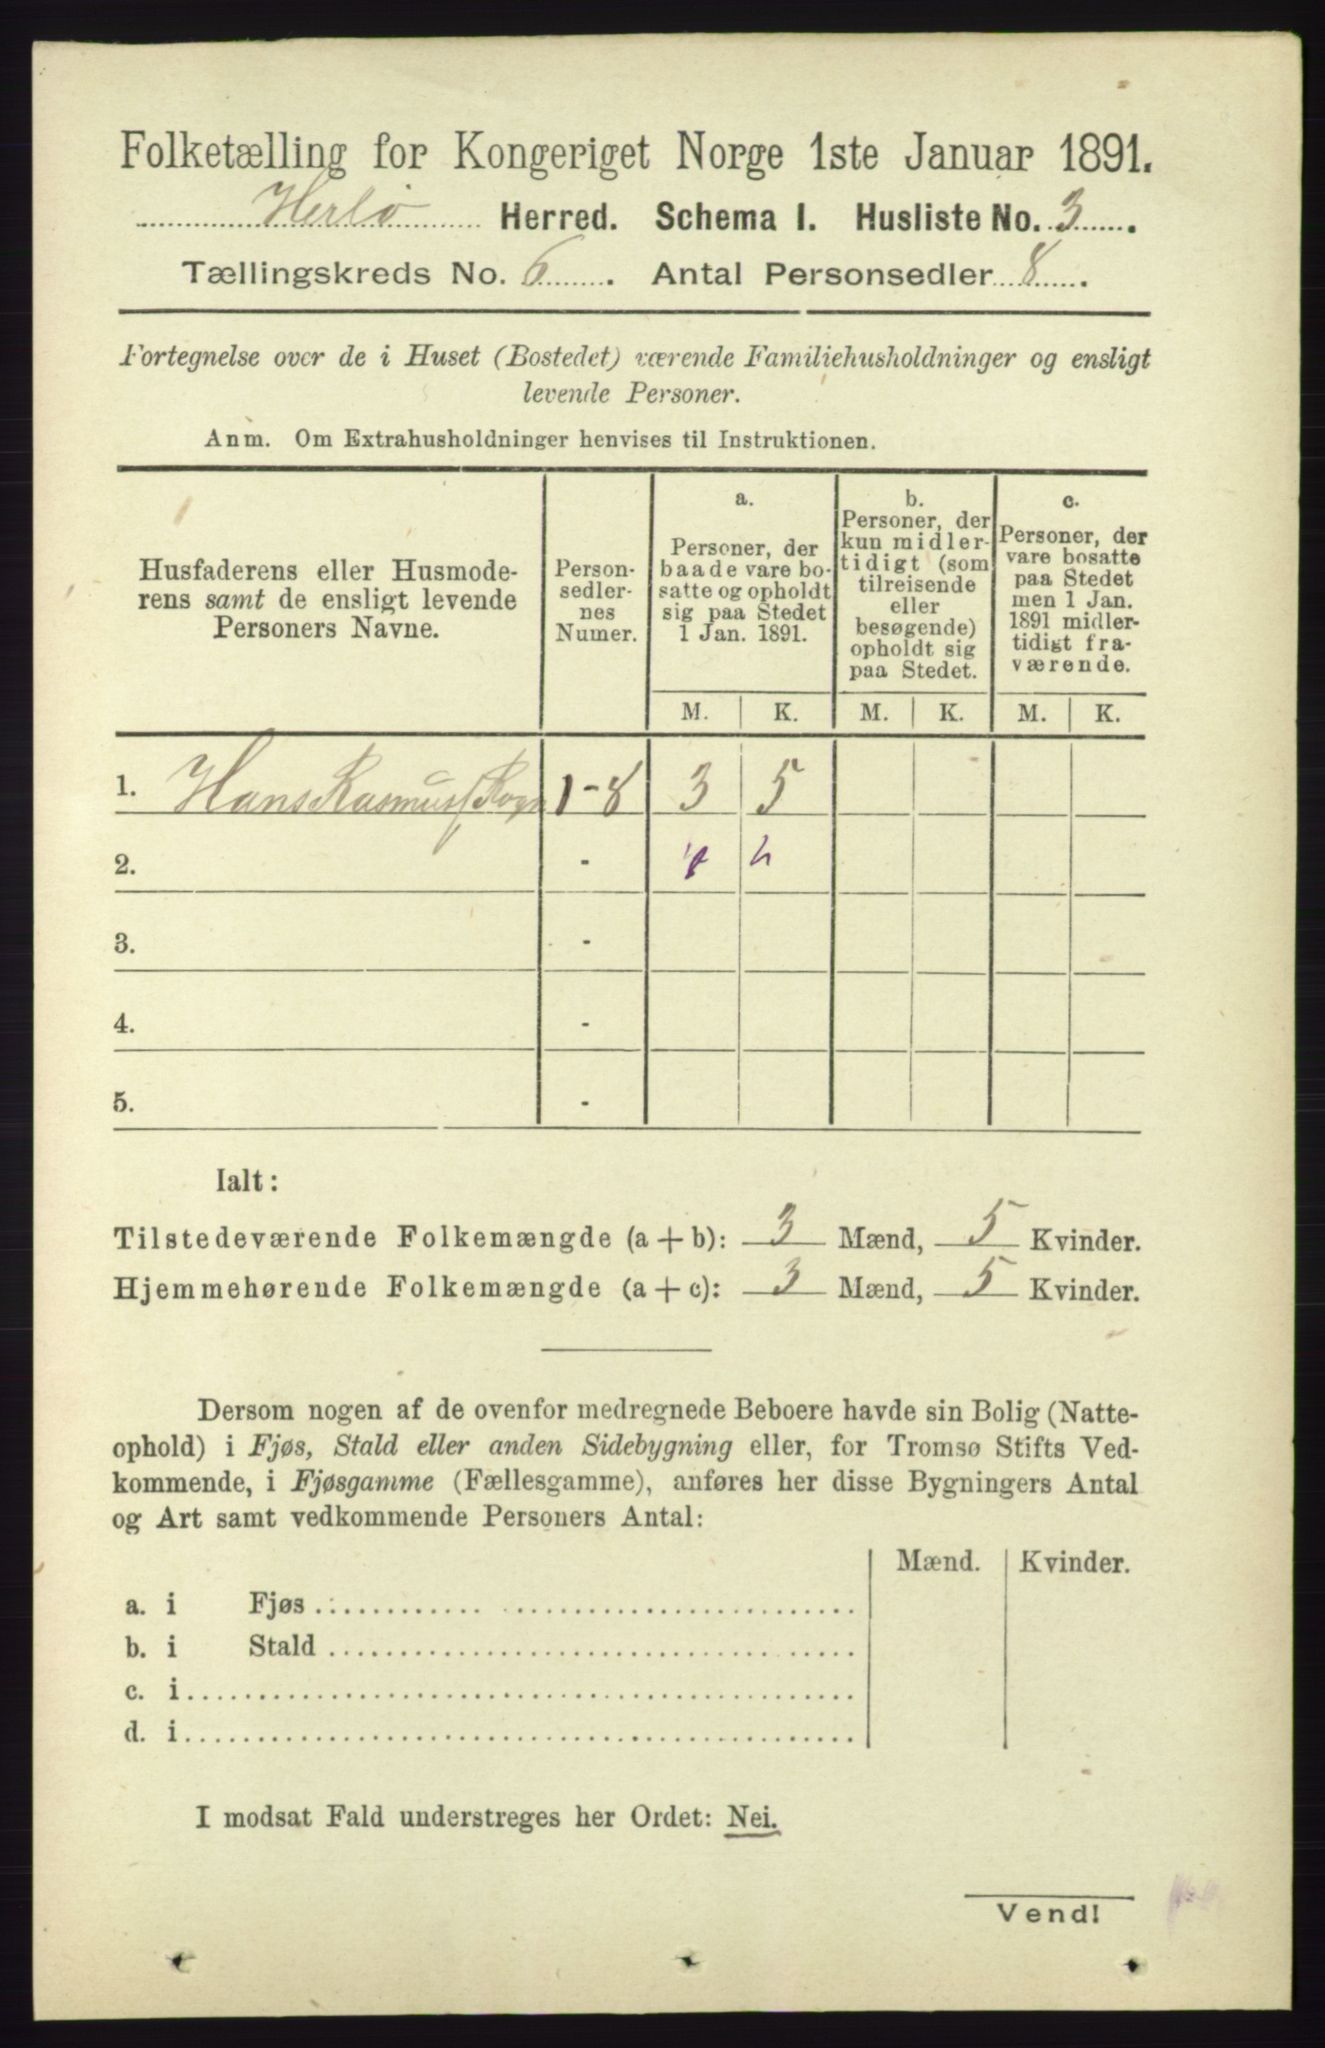 Folketælling for Kongeriget Norge 1ste Januar 1891.
Herlø Herred. Schema I. Husliste No. 3.
Tællingskreds No. 6. Antal Personsedler 8.
Fortegnelse over de i Huset (Bostedet) værende Familiehusholdninger og ensligt
levende Personer.
Anm. Om Extrahusholdninger henvises til Instruktionen.
Husfaderens eller Husmode-
rens samt de ensligt levende
Personers Navne.
Person-
sedler-
nes
Numer.
a.
Personer, der
baade vare bo-
satte og opholdt
sig paa Stedet
1 Jan. 1891.
b.
Personer, der
kun midler-
tidigt (som
tilreisende
eller
besøgende)
opholdt sig
paa Stedet.
c.
Personer, der
vare bosatte
paa Stedet
men 1 Jan.
1891 midler-
tidigt fra-
værende.
M. K. M. K. M. K.
1. Hans Rasmus 1-8 3 5
2. -
3. -
4. -
5. -
Ialt:
Tilstedeværende Folkemængde (a+b): 3 Mænd, 5 Kvinder.
Hjemmehørende Folkemængde (a+c): 3 Mænd, 5 Kvinder.
Dersom nogen af de ovenfor medregnede Beboere havde sin Bolig (Natte-
ophold) i Fjøs, Stald eller anden Sidebygning eller, for Tromsø Stifts Ved-
kommende, i Fjøsgamme (Fællesgamme), anføres her disse Bygningers Antal
og Art samt vedkommende Personers Antal:
Mænd. Kvinder.
a. i Fjøs
b. i Stald
c. i
d. i
I modsat Fald understreges her Ordet: Nei.
Vend!